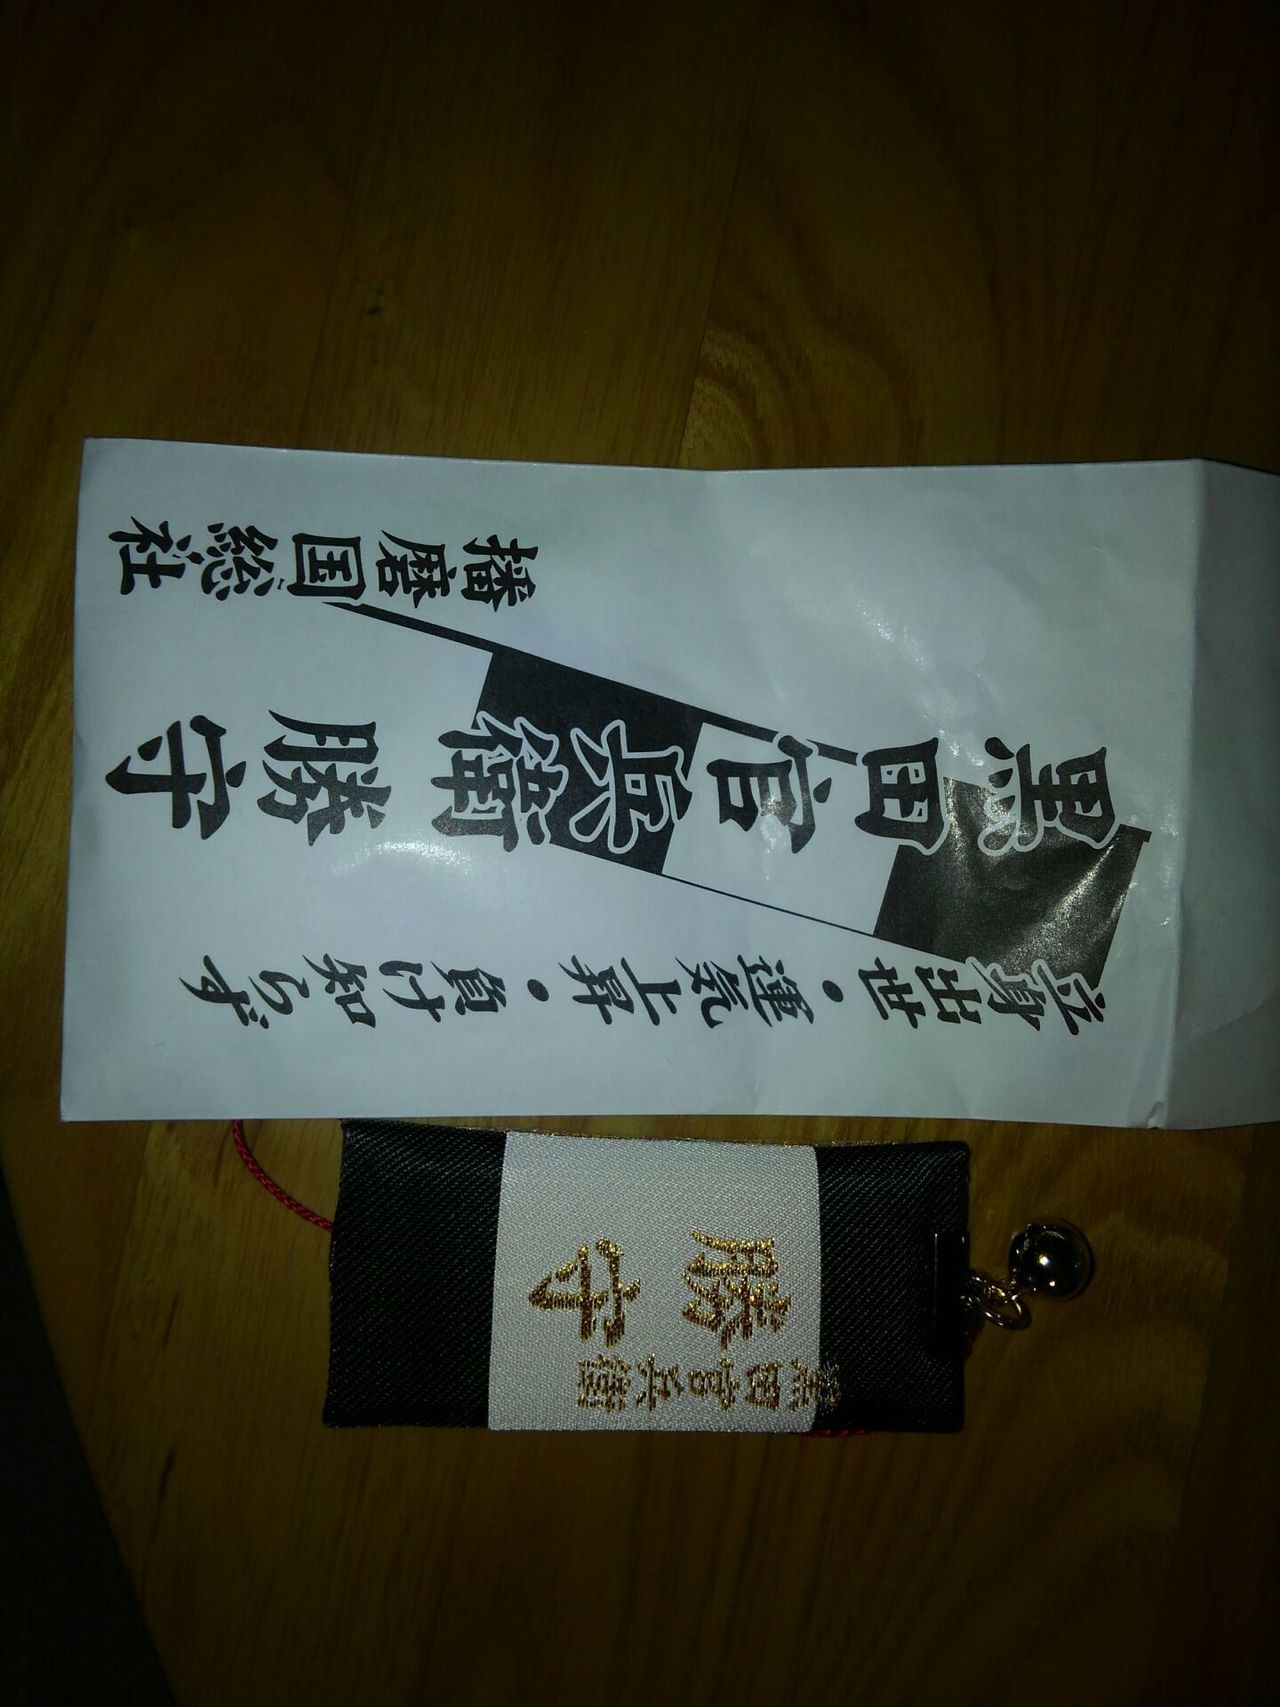 立身出世・運気上昇・負け知らず
黒田官兵衛勝守
播磨国総社
黒田官兵衛
勝守